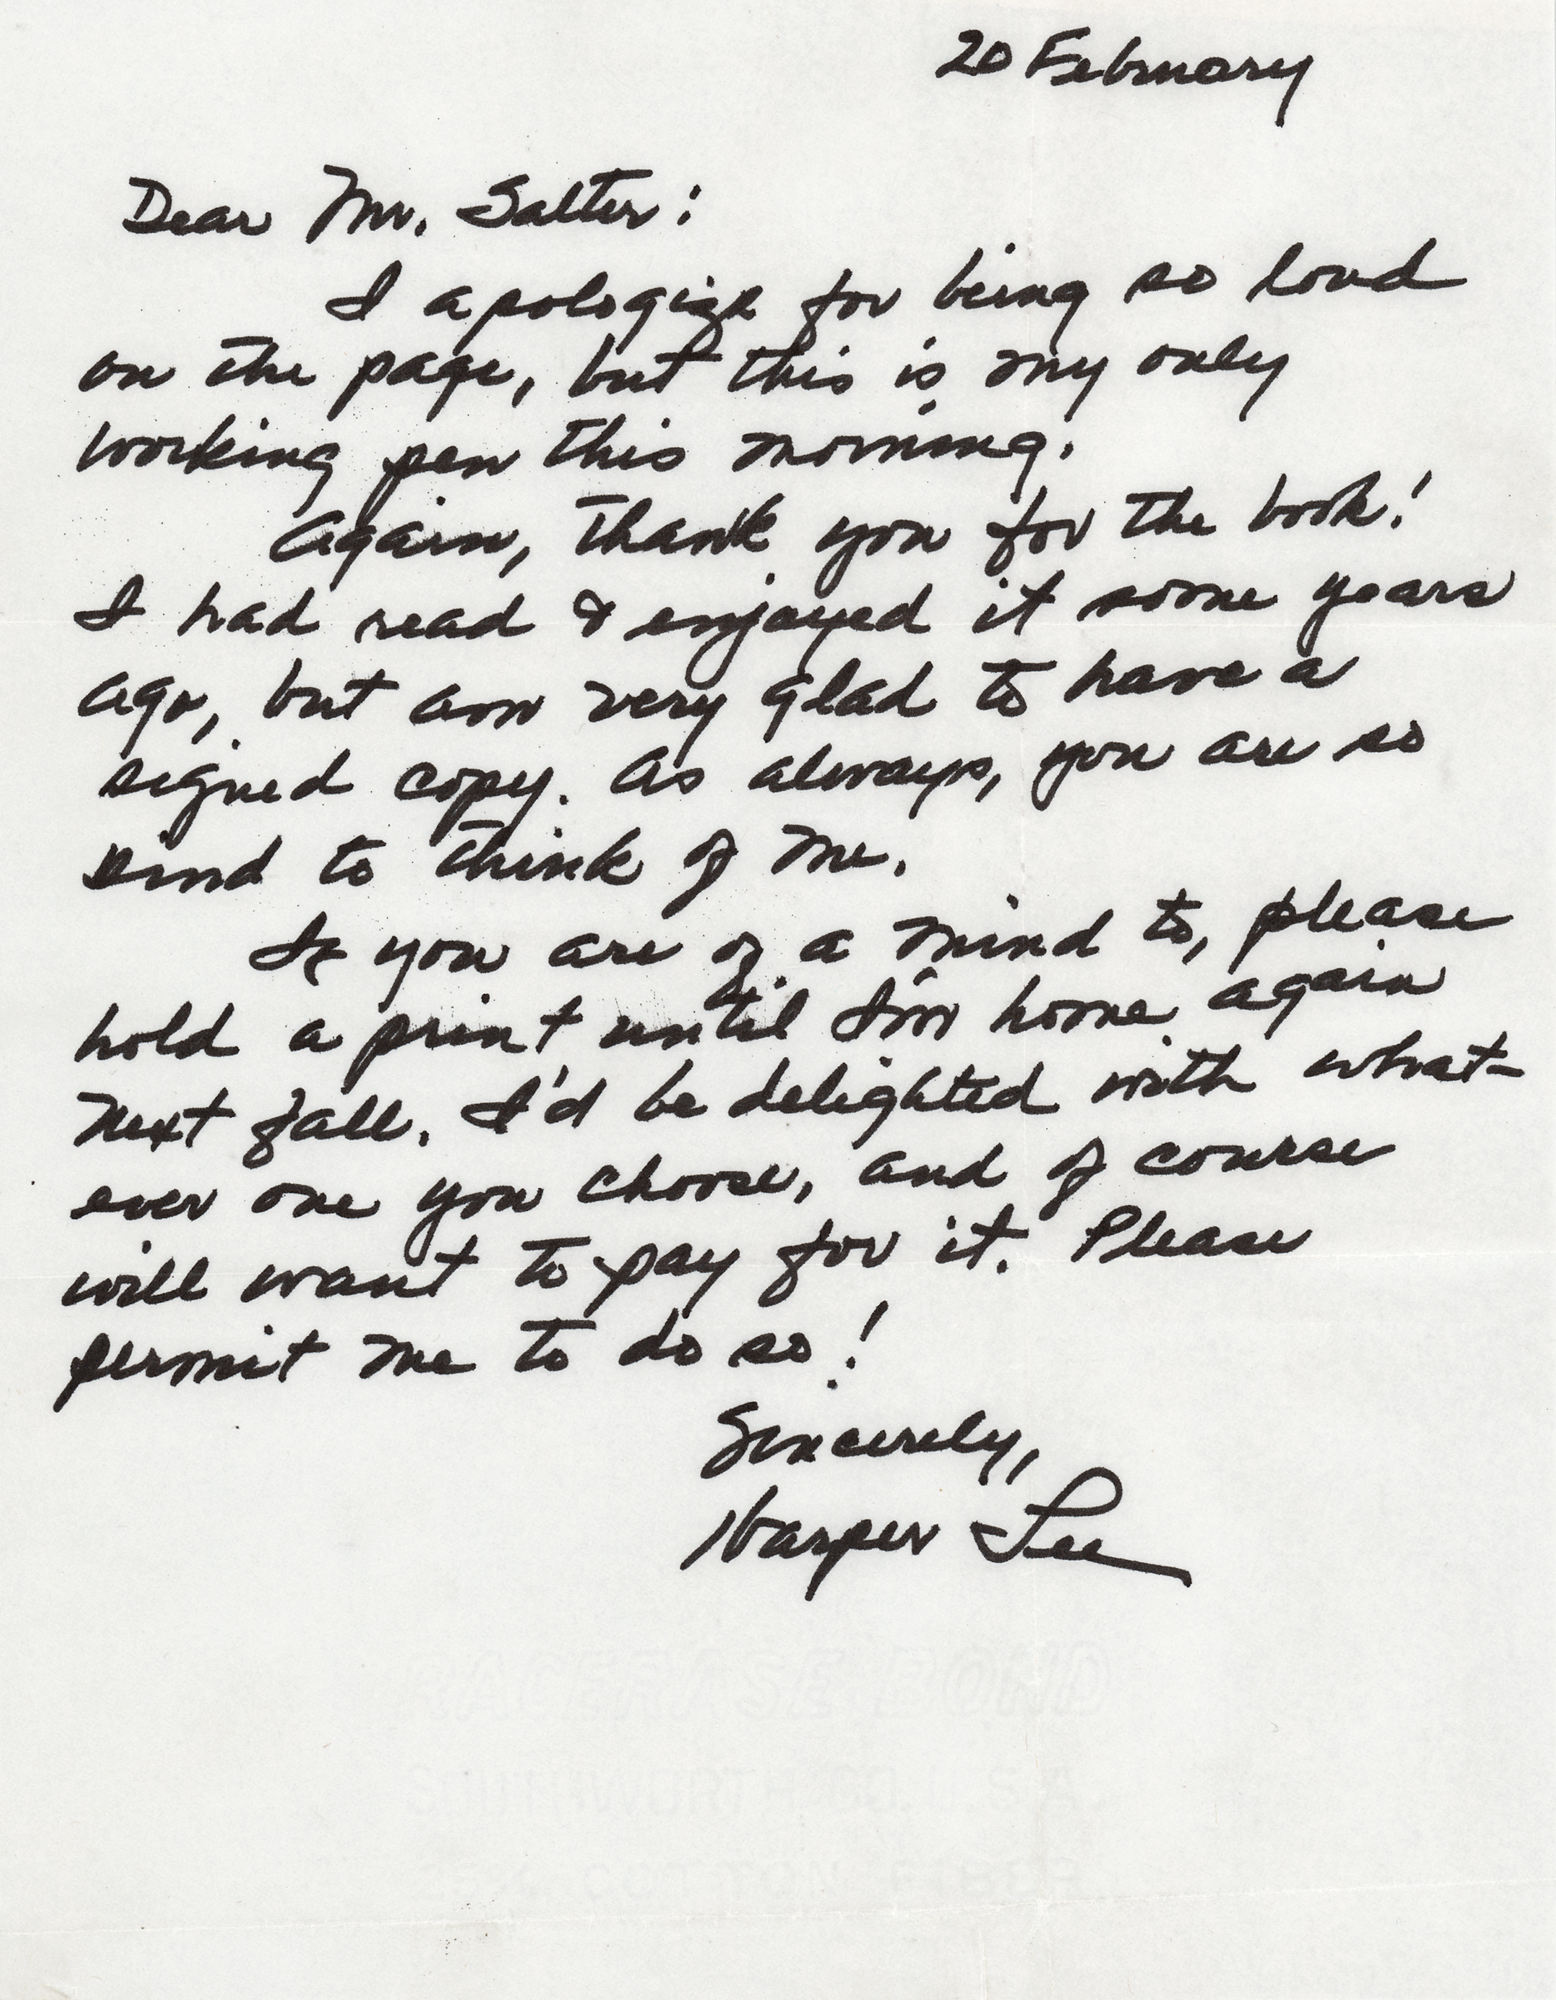 20 February
Dear Mr. Salter:
I apologize for being so loud
on the page, but this is my only
working pen this morning.
Again, thank you for the book!
I had read & enjoyed it some years
ago, but am very glad to have a
signed copy. As always, you are so
kind to think of me.
If you are of a mind to, please
hold a print until I'm home again
next fall. I'd be delighted with what-
ever one you choose, and of course
will want to pay for it. Please
permit me to do so!
Sincerely,
Harper Lee
RACERASE BOND
SOUTHWORTH CO. U.S.A.
25% COTTON FIBER